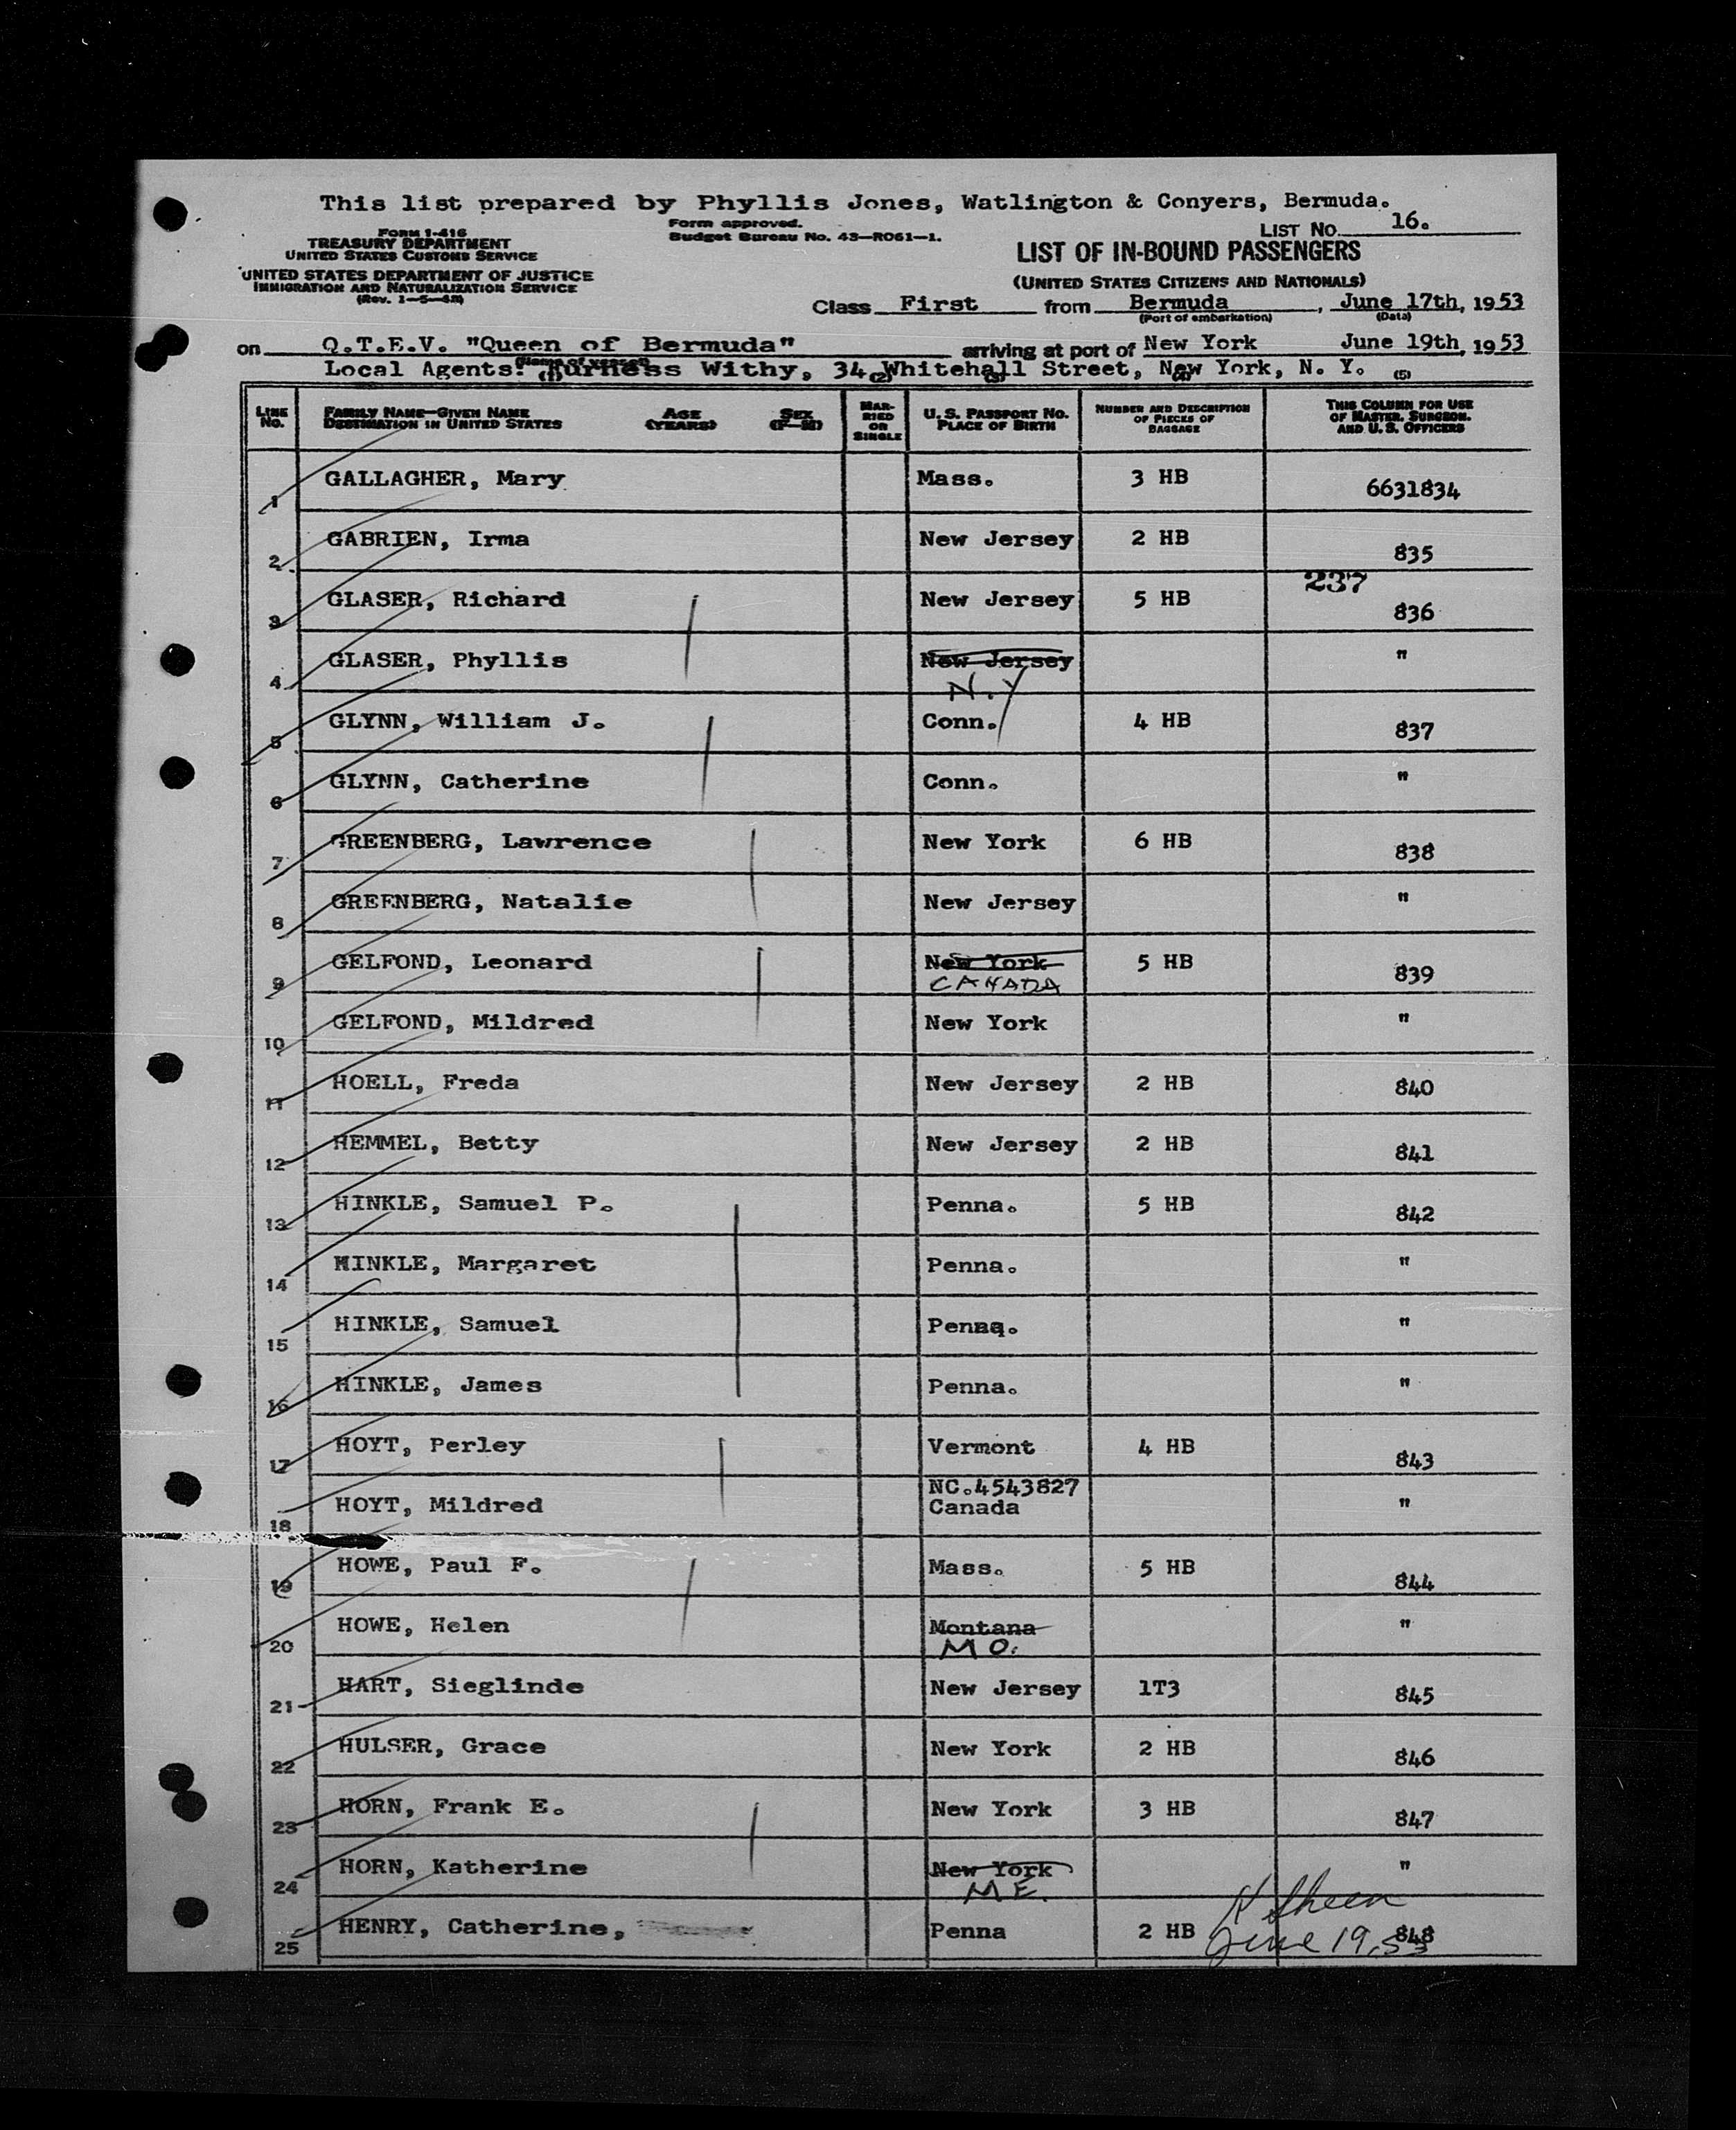 This list prepared by Phyllis Jones, Watlington & Conyers, Bermuda.
Form approved.
Budget Bureau No. 43—RO61—1.
LIST NO. 16.
FORM I-416
TREASURY DEPARTMENT
UNITED STATES CUSTOMS SERVICE
UNITED STATES DEPARTMENT OF JUSTICE
IMMIGRATION AND NATURALIZATION SERVICE
LIST OF IN-BOUND PASSENGERS
(UNITED STATES CITIZENS AND NATIONALS)
Class First from Bermuda, June 17th, 1953
(Port of embarkation) (Date)
on Q.T.E.V. "Queen of Bermuda" arriving at port of New York June 19th, 1953
(Name of vessel)
Local Agents: Furness Withy, 34 Whitehall Street, New York, N. Y.
(1) (2) (3) (4) (5)
LINE No. FAMILY NAME—GIVEN NAME DESTINATION IN UNITED STATES AGE (YEARS) SEX (F—M) MARRIED OR SINGLE U. S. PASSPORT NO. PLACE OF BIRTH NUMBER AND DESCRIPTION OF PIECES OF BAGGAGE THIS COLUMN FOR USE OF MASTER, SURGEON, AND U. S. OFFICERS
1 GALLAGHER, Mary Mass. 3 HB 6631834
2 GABRIEN, Irma New Jersey 2 HB 835
237
3 GLASER, Richard New Jersey 5 HB 836
4 GLASER, Phyllis New Jersey "
N.Y
5 GLYNN, William J. Conn. 4 HB 837
6 GLYNN, Catherine Conn. "
7 GREENBERG, Lawrence New York 6 HB 838
8 GREENBERG, Natalie New Jersey "
9 GELFOND, Leonard New York 5 HB 839
CANADA
10 GELFOND, Mildred New York "
11 HOELL, Freda New Jersey 2 HB 840
12 HEMMEL, Betty New Jersey 2 HB 841
13 HINKLE, Samuel P. Penna. 5 HB 842
14 HINKLE, Margaret Penna. "
15 HINKLE, Samuel Penna. "
16 HINKLE, James Penna. "
17 HOYT, Perley Vermont 4 HB 843
NC.4543827
18 HOYT, Mildred Canada "
19 HOWE, Paul F. Mass. 5 HB 844
20 HOWE, Helen Montana "
MO.
21 HART, Sieglinde New Jersey 1T3 845
22 HULSER, Grace New York 2 HB 846
23 HORN, Frank E. New York 3 HB 847
24 HORN, Katherine New York "
ME.
25 HENRY, Catherine, Penna 2 HB 848
Sheen
June 19, 53